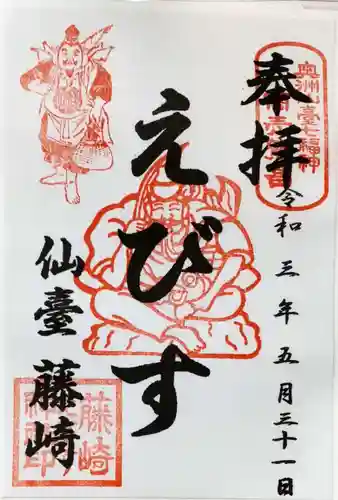 奉拝
奥州仙臺七福神
令和三年五月三十一日
えびす
仙臺 藤崎
藤崎